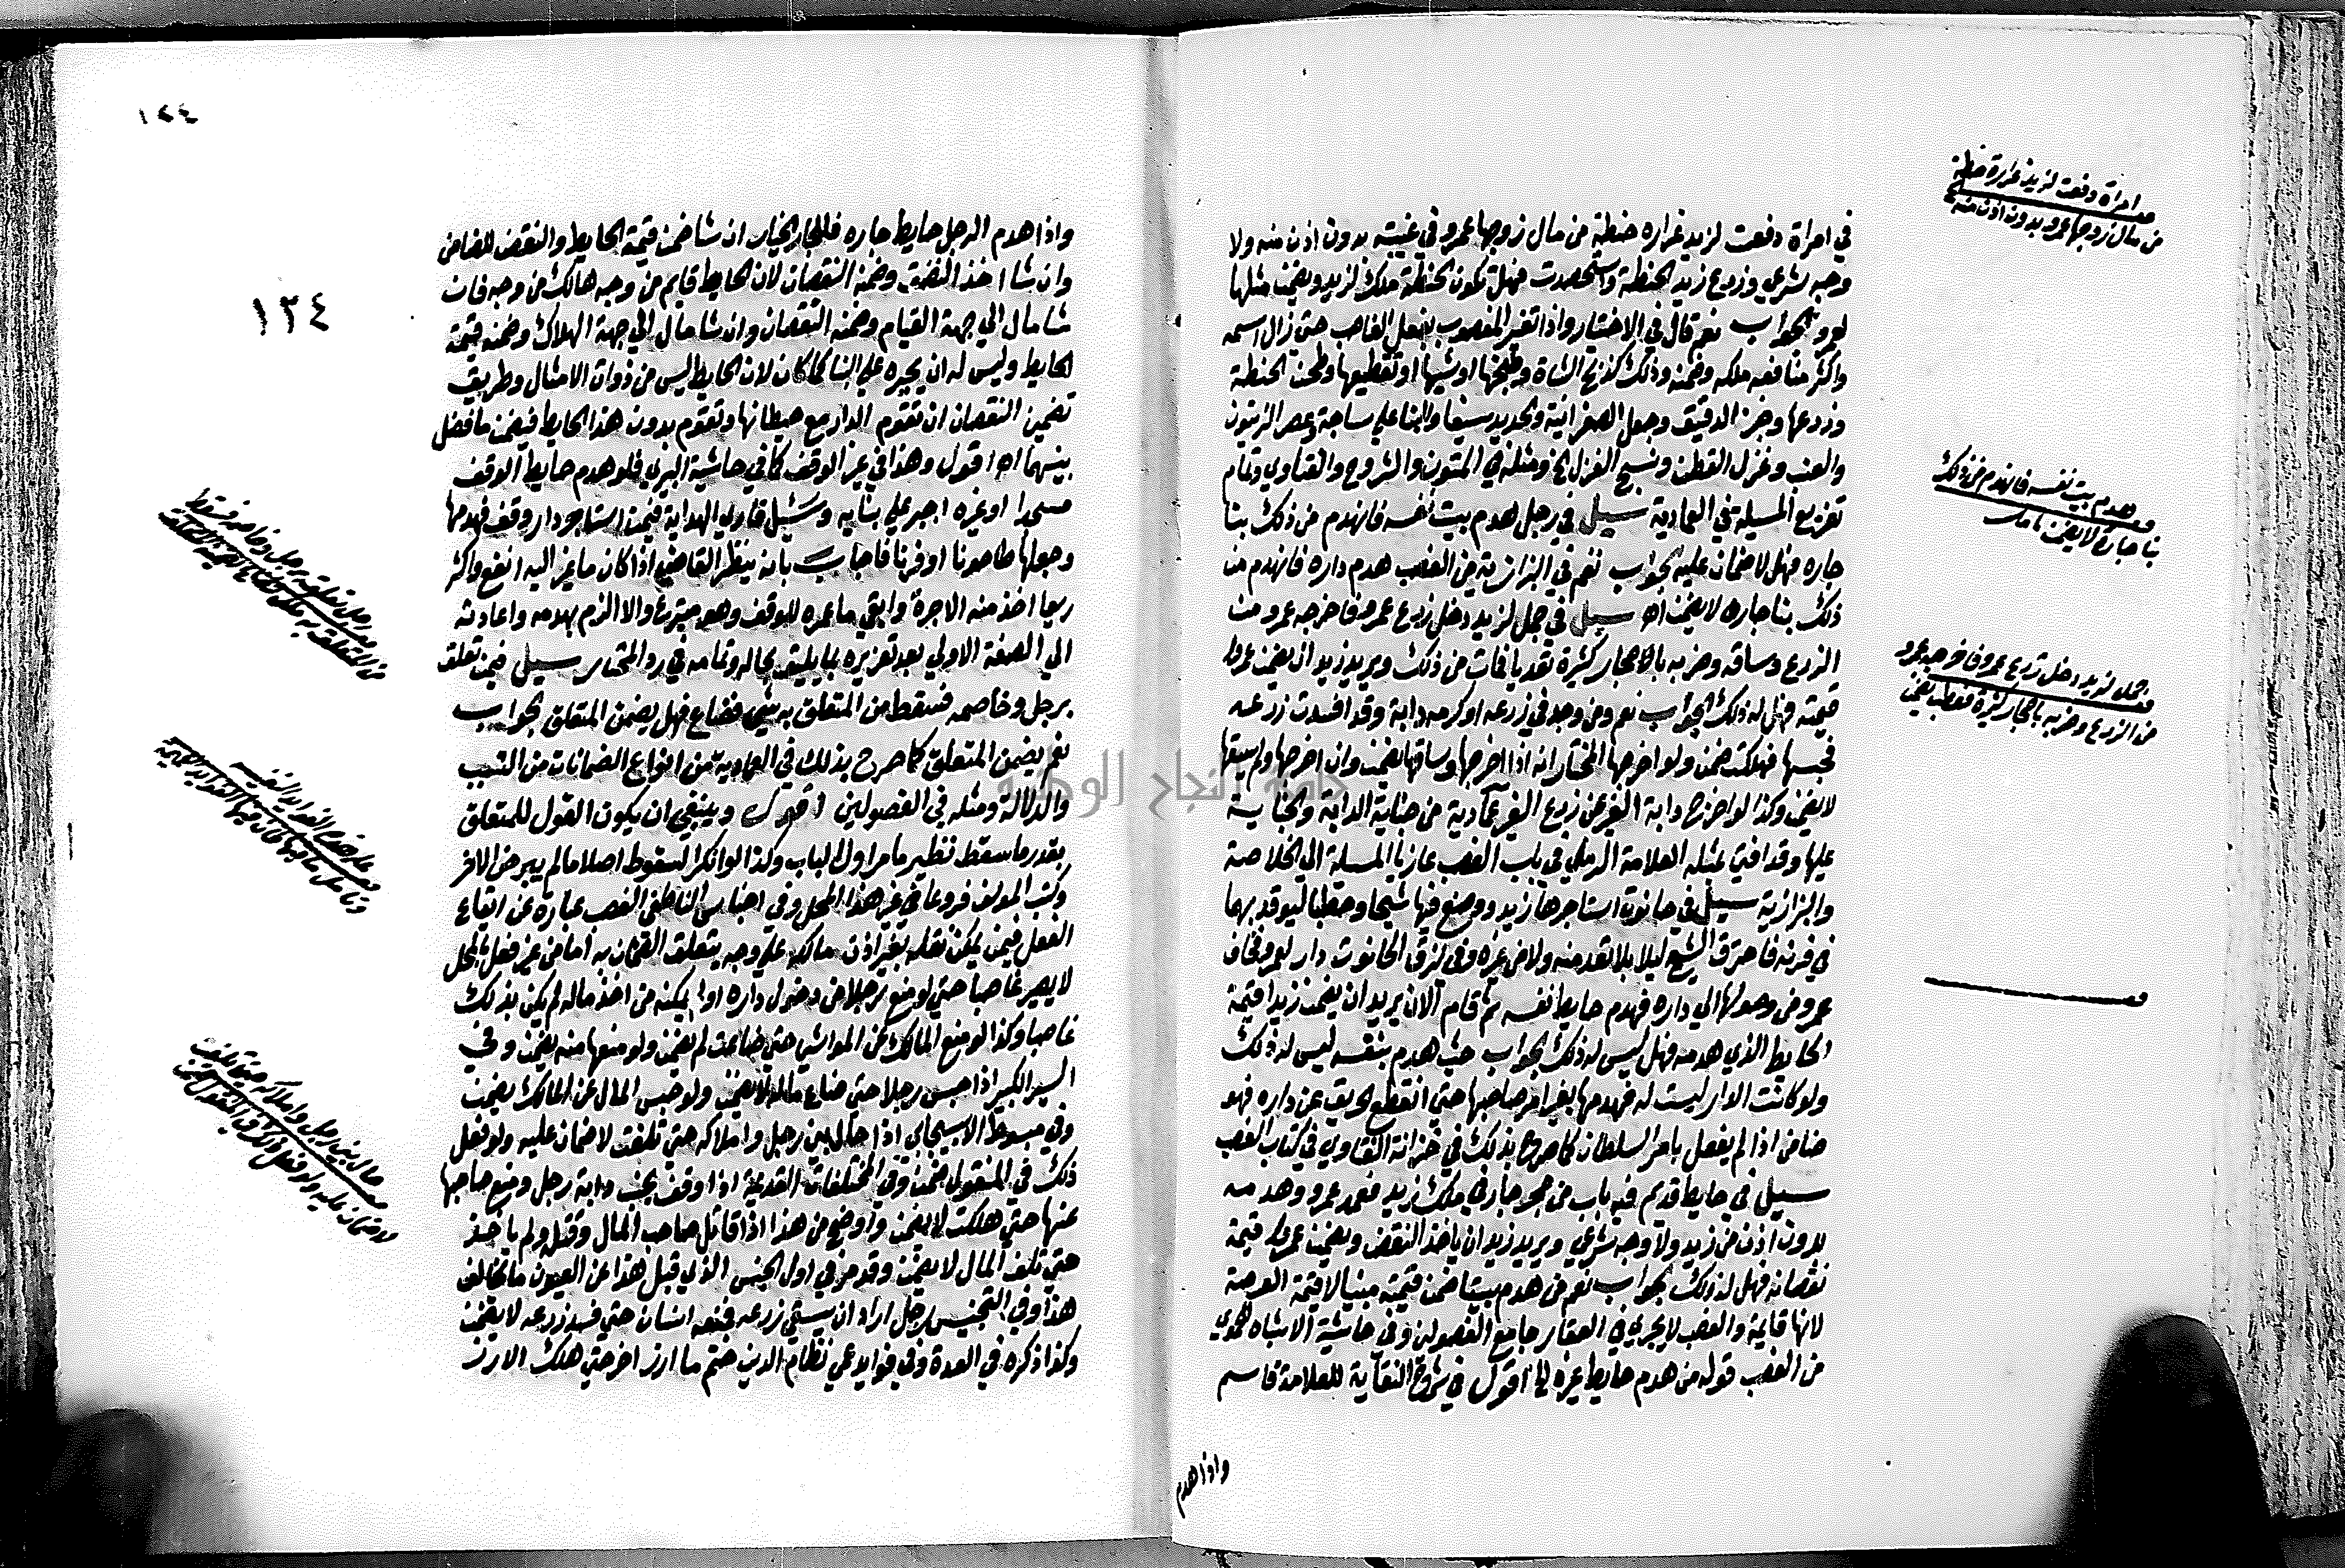 في امراة دفعت لزيد غرارة حنطة من مال زوجها عمرو في غيبته بدون اذن منه ولا
وجه شرعي وزرع زيد الحنطة واستحصدت فهل تكون الحنطة ملك لزيد ويضمن مثلها
لعمرو الجواب نعم قال في الاختيار واذا تغير المغصوب بفعل الغاصب حتى زال اسمه
واكثر منافعه ملكه وضمنه وذلك كذبح الشاة وطبخها او شيها او تقطيعها وطحن الحنطة
وزرعها وخبز الدقيق وجعل الصفر انية والحديد سيفا والبنا على ساجة وعصر الزيتون
والعنب وغزل القطن ونسج الغزل الخ ومثله في المتون والشروح والفتاوي وتمام
تفريع المسيلة في العمادية سيل في رجل هدم بيت نفسه فانهدم من ذلك بنا
جاره فهل لا ضمان عليه الجواب نعم في البزازية من الغصب هدم داره فانهدم من
ذلك بنا جاره لا يضمن اه سيل في جمل لزيد دخل زرع عمرو فاخرجه عمرو من
الزرع وساقه وضربه بالاحجار كثيرة تعديا فمات من ذلك ويريد زيد ان يضمن عمرا
قيمته فهل له ذلك الجواب نعم ومن وجد في زرعه او كرمه دابة وقد افسدت زرعه
فحبسها فهلكت ضمن ولو اخرجها المختار انه اذا اخرجها وساقها يضمن وان اخرجها ولم يسقها
لا يضمن وكذا لو اخرج دابة الغير عن زرع الغير عمادية من جناية الدابة والجناية
عليها وقد افتى بمثله العلامة الرملي في باب الغصب عازيا المسلة الى الخلاصة
والبزازية سيل في حانوت استاجرها زيد ووضع فيها شيحا وحطبا ليوقد بهما
في فرنه فاحترق الشيح ليلا بلا تعد منه ولا من غيره وفي لزق الحانوت دار لعمرو فخاف
عمرو من وصولها الى داره فهدم حايط نفسه ثم قام الان يريد ان يضمن زيدا قيمة
الحايط الذي هدمه فهل ليس له ذلك الجواب حيث هدم بنفسه ليس له ذلك
ولو كانت الدار ليست له فهدمها بغير امر صاحبها حتى انقطع الحريق عن داره فهو
ضامن اذا لم يفعل بامر السلطان كما صرح بذلك في خزانة الفتاوي في كتاب الغصب
سيل في حايط قديم فيه باب من حجر جاري ملك زيد فعمد عمرو وهدمه
بدون اذن من زيد ولا وجه شرعي ويريد زيد ان ياخذ النقض ويضمن عمرا قيمة
نقصانه فهل له ذلك الجواب نعم من هدم بيتا ضمن قيمته مبنيا لا قيمة العرصة
لانها قايمة والغصب لا يجري في العقار جامع الفصولين وفي حاشية الاشباه للحموي
من الغصب قوله من هدم حايط غيره الخ اقول في شرح النقاية للعلامة قاسم
واذا هدم
امراة دفعت لزيد غرارة حنطة
من مال زوجها عمرو بدون اذن منه
هدم بيت نفسه فانهدم من ذلك
بنا جاره لا يضمن
جمل لزيد دخل زرع عمرو فاخرجه عمرو
من الزرع وضربه باحجار كثيرة فعطب يضمن
١٢٤
١٣٤
واذا هدم الرجل حايط جاره فللجار الخيار ان شا ضمن قيمة الحايط والنقض للضامن
وان شا اخذ النقض وضمنه النقصان لان الحايط قايم من وجه هالك من وجه فان
شا مال الى جهة القيام وضمنه النقصان وان شا مال الى جهة الهلاك وضمنه قيمة
الحايط وليس له ان يجبره على البنا كما كان لان الحايط ليس من ذوات الامثال وطريق
تضمين النقصان ان تقوم الدار مع حيطانها وتقوم بدون هذا الحايط فيضمن ما فضل
بينهما اه اقول وهذا في غير الوقف كما في حاشية البيري فلو هدم حايط الوقف
مسجدا او غيره اجبر على بنايه وسيل قاري الهداية فيمن استاجر دار وقف فهدمها
وجعلها طاحونا او فرنا فاجاب بانه ينظر القاضي اذا كان ما غير اليه انفع واكثر
ريعا اخذ منه الاجرة وابقي ما عمره للوقف وهو متبرع والا الزم بهدمه واعادته
الى الصفة الاولى بعد تعزيره بما يليق بحاله وتمامه في رد المحتار سيل فيمن تعلق
برجل وخاصمه فسقط من المتعلق به شي فضاع فهل يضمن المتعلق الجواب
نعم يضمن المتعلق كما صرح بذلك في العمادية من انواع الضمانات من التسبب
والدلالة ومثله في الفصولين اقول وينبغي ان يكون القول للمتعلق
بقدر ما سقط نظير ما مر اول الباب وكذا لو انكر السقوط اصلا ما لم يبرهن الاخر
وكتب المولف فروعا في غير هذا المحل وفي اجناس الناطفي الغصب عبارة عن ايقاع
الفعل فيمن يمكن نقله بغير اذن مالكه على وجه يتعلق الضمان به اما من غير فعل المحل
لا يصير غاصبا حتى لو منع رجلا من دخول داره او لم يمكنه من اخذ ماله لم يكن بذلك
غاصبا وكذا لو منع المالك عن المواشي حتى ضاعت لم يضمن ولو منعها منه يضمن وفي
السير الكبير اذا حبس رجلا حتى ضاع ماله لا يضمن ولو حبس المال عن المالك يضمن
وفي مبسوط الاسبيجابي اذا حال بين رجل واملاكه حتى تلفت لا ضمان عليه ولو فعل
ذلك في المنقول ضمن وفي المختلفات القديمة اذا وقف بجنب دابة رجل ومنع صاحبها
عنها حتى هلكت لا يضمن واوضح من هذا اذا قاتل صاحب المال وقتله ولم ياخذ
حتى تلف المال لا يضمن وقد مر في اول الجنس الذي قبل هذا عن العيون ما يخالف
هذا وفي التجنيس رجل اراد ان يسقي زرعه فمنعه انسان حتى فسد زرعه لا يضمن
وكذا ذكره في العدة وفي فوايد عمي نظام الدين ختم ما ارز اخر حتى هلك الارز
رجل تعلق برجل وخاصمه فسقط
من المتعلق به شي فضاع يضمنه المتعلق
حال بين رجل واملاكه حتى تلفت
لا ضمان عليه ولو فعل ذلك في المنقول ضمن
جامعة النجاح الوطنية